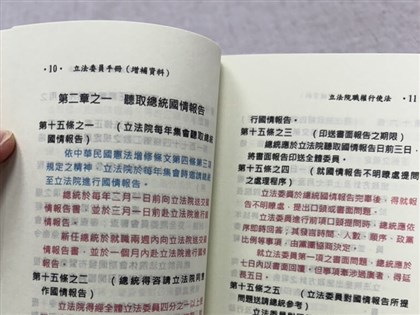 ·10· 立法委員手冊(增補資料)
第二章之一 聽取總統國情報告
第十五條之一 (立法院每年集會聽取總統
國情報告)
依中華民國憲法增修條文第四條第三項
規定之精神,立法院於每年集會時邀請總統
至立法院進行國情報告。
總統於每年二月一日前向立法院送交國
情報告書,並於三月一日前赴立法院進行國
情報告。
新任總統於就職兩週內向立法院送交國
情報告書,並於一個月內赴立法院進行國情
報告。
第十五條之二 (總統得咨請立法院同意
作國情報告)
立法院得經全體立法委員四分之一以上
立法院職權行使法 11
行國情報告。
第十五條之三 (印送書面報告之期限)
總統應於立法院聽取國情報告日前三日,
將書面報告印送全體委員。
第十五條之四 (就國情報告不明瞭處提問
之處理程序)
立法委員於總統國情報告完畢後,得就報
告不明瞭處,提出口頭或書面問題。
立法委員進行前項口頭提問時,總統應依
序即時回答;其發言時間、人數、順序、政黨
比例等事項,由黨團協商決定。
就立法委員第一項之書面問題,總統應於
七日內以書面回覆。但事項牽涉過廣者,得延
長五日。
第十五條之五 (立法委員對國情報告所提
問題送請總統參考)